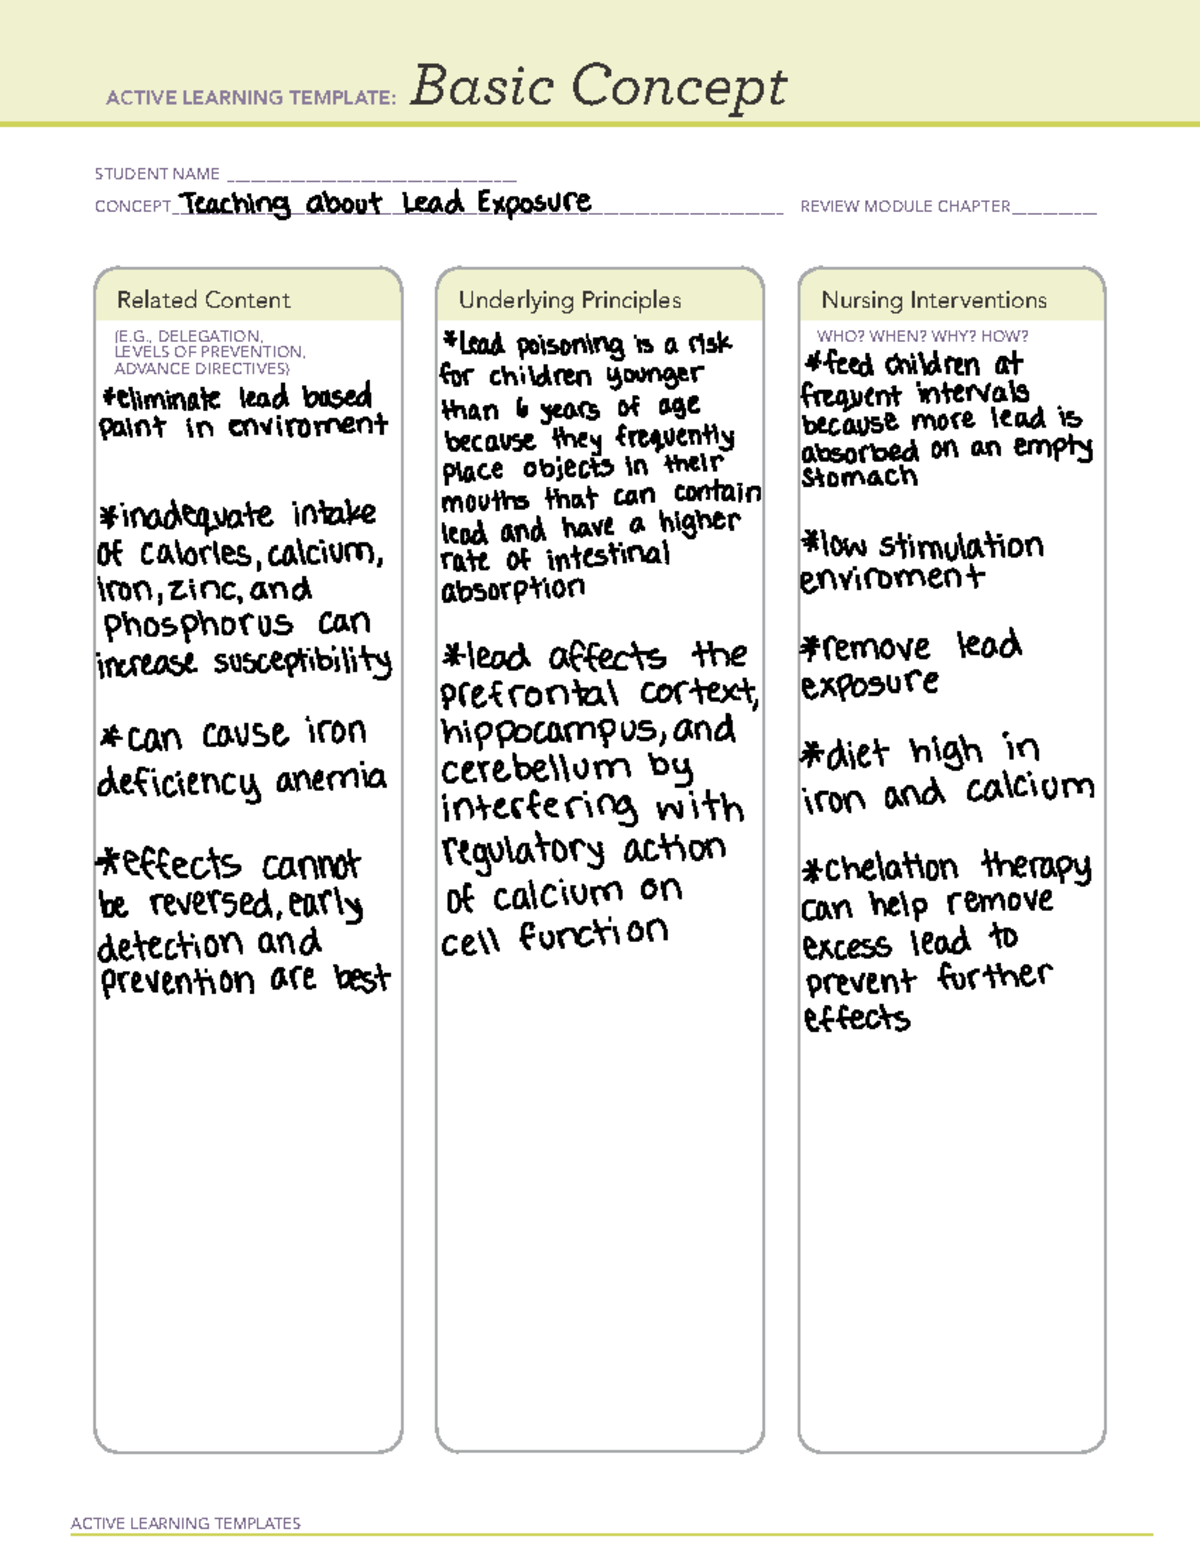 ACTIVE LEARNING TEMPLATE: Basic Concept
STUDENT NAME
CONCEPT Teaching about Lead Exposure REVIEW MODULE CHAPTER
Related Content
(E.G., DELEGATION,
LEVELS OF PREVENTION,
ADVANCE DIRECTIVES)
*eliminate lead based
paint in enviroment
*inadequate intake
of calories, calcium,
iron, zinc, and
phosphorus can
increase susceptibility
*can cause iron
deficiency anemia
*effects cannot
be reversed, early
detection and
prevention are best
Underlying Principles
*Lead poisoning is a risk
for children younger
than 6 years of age
because they frequently
place objects in their
mouths that can contain
lead and have a higher
rate of intestinal
absorption
*lead affects the
prefrontal cortext,
hippocampus, and
cerebellum by
interfering with
regulatory action
of calcium on
cell function
Nursing Interventions
WHO? WHEN? WHY? HOW?
*feed children at
frequent intervals
because more lead is
absorbed on an empty
stomach
*low stimulation
enviroment
*remove lead
exposure
*diet high in
iron and calcium
*chelation therapy
can help remove
excess lead to
prevent further
effects
ACTIVE LEARNING TEMPLATES